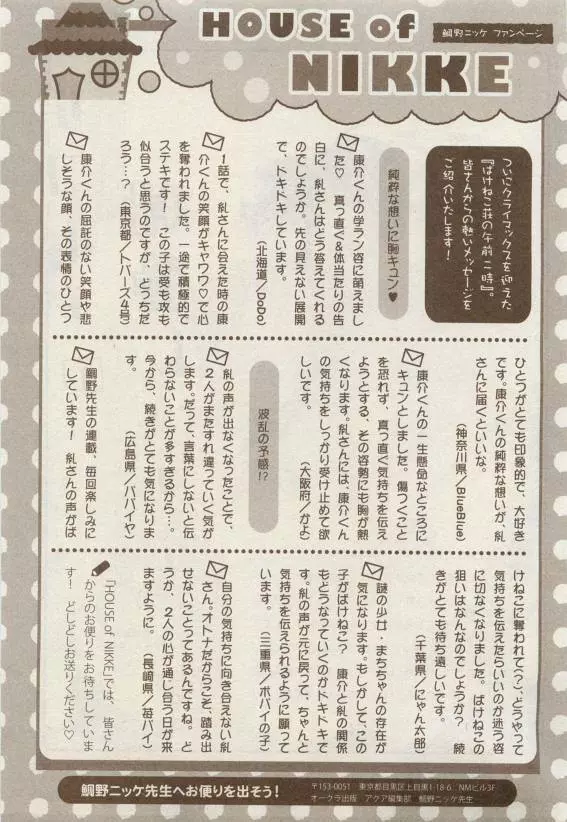 HOUSE of
NIKKE
鯛野ニッケ ファンページ
ついにクライマックスを迎えた
『ばけねこ荘の午前二時』。
皆さんからの熱いメッセージを
ご紹介いたします!
純粋な想いに胸キュン♥
康介くんの学ラン姿に萌えまし
た♡ 真っ直ぐ&体当たりの告
白に、糺さんはどう答えてくれる
のでしょうか。先の見えない展開
で、ドキドキしています。
(北海道/DoDo)
1話で、糺さんに会えた時の康
介くんの笑顔がキャワワ♡で心
を奪われました。一途で積極的で
ステキです! この子は受も攻も
似合うと思うのですが、どっちだ
ろう…? (東京都/トパーズ4号)
康介くんの屈託のない笑顔や悲
しそうな顔、その表情のひとつ
ひとつがとても印象的で、大好き
です。康介くんの純粋な想いが、糺
さんに届くといいな。
(神奈川県/BlueBlue)
康介くんの一生懸命なところに
キュンとしました。傷つくこと
を恐れず、真っ直ぐ気持ちを伝え
ようとする、その姿勢にも胸が熱
くなります。糺さんには、康介くん
の気持ちをしっかり受け止めて欲
しいです。 (大阪府/かよ)
波乱の予感!?
糺の声が出なくなったことで、
2人がまたすれ違っていく気が
します。だって、言葉にしないと伝
わらないことが多すぎるから…。
今から、続きがとても気になりま
す。 (広島県/パパイヤ)
鯛野先生の連載、毎回楽しみに
しています! 糺さんの声がば
けねこに奪われて(?)、どうやって
気持ちを伝えたらいいのか迷う姿
に切なくなりました。ばけねこの
狙いはなんなのでしょうか? 続
きがとても待ち遠しいです。
(千葉県/にゃん太郎)
謎の少女・まちちゃんの存在が
気になります。もしかして、この
子がばけねこ? 康介と糺の関係
もどうなっていくのかドキドキで
す。糺の声が元に戻って、ちゃんと
気持ちを伝えられるように願って
います。 (三重県/ポパイの子)
自分の気持ちに向き合えない糺
さん。オトナだからこそ、踏み出
せないことってあるんですね。ど
うか、2人の心が通じ合う日が来
ますように。 (長崎県/苺パイ)
「HOUSE of NIKKE」では、皆さん
からのお便りをお待ちしていま
す! どしどしお送りください♡
鯛野ニッケ先生へお便りを出そう!
〒153-0051 東京都目黒区上目黒1-18-6 NMビル3F
オークラ出版 アクア編集部 鯛野ニッケ先生